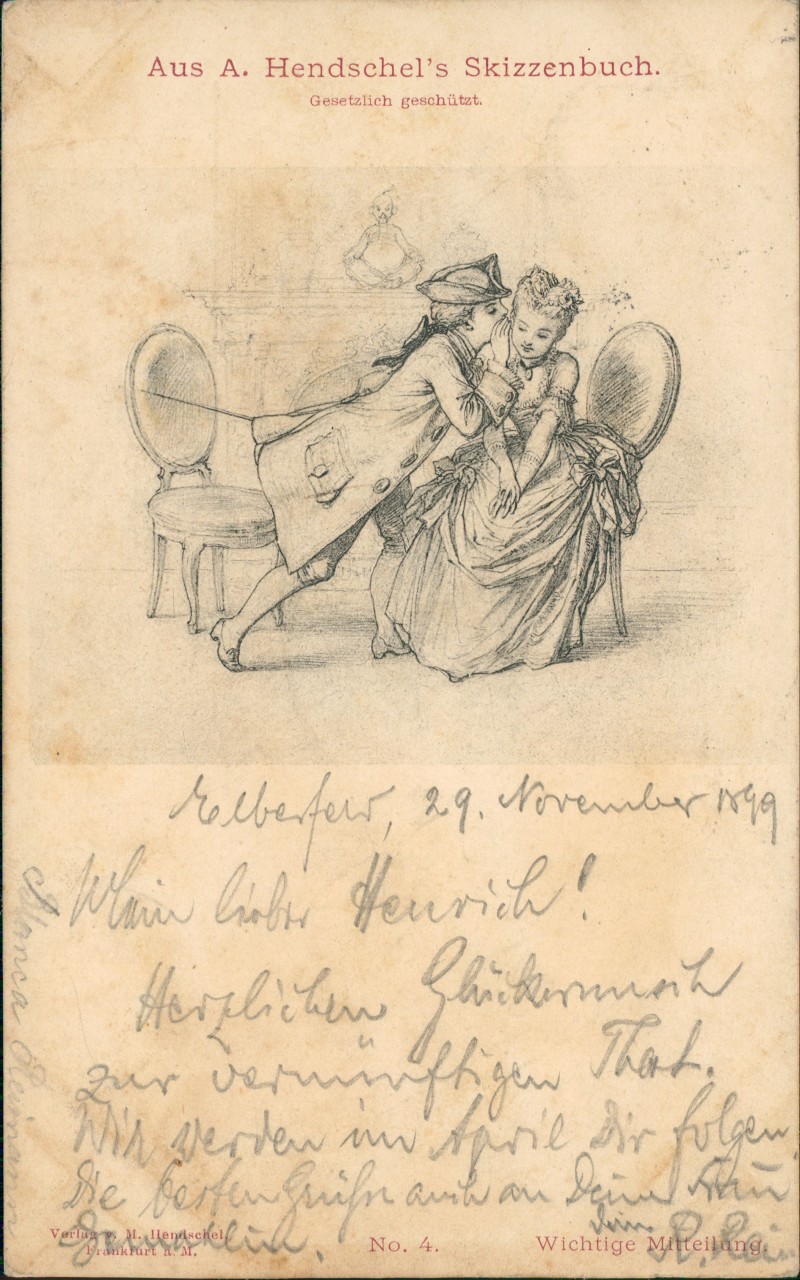 Aus A. Hendschel's Skizzenbuch.
Gesetzlich geschützt.
Elberfeld, 29. November 1899
Mein lieber Heinrich!
Herzlichen Glückwunsch
zur vernünftigen That.
Wir werden im April Dir folgen.
Die besten Grüße auch an Deine Frau
Gemahlin.
Dein
Verlag v. M. Hendschel,
Frankfurt a. M.
No. 4.
Wichtige Mitteilung.